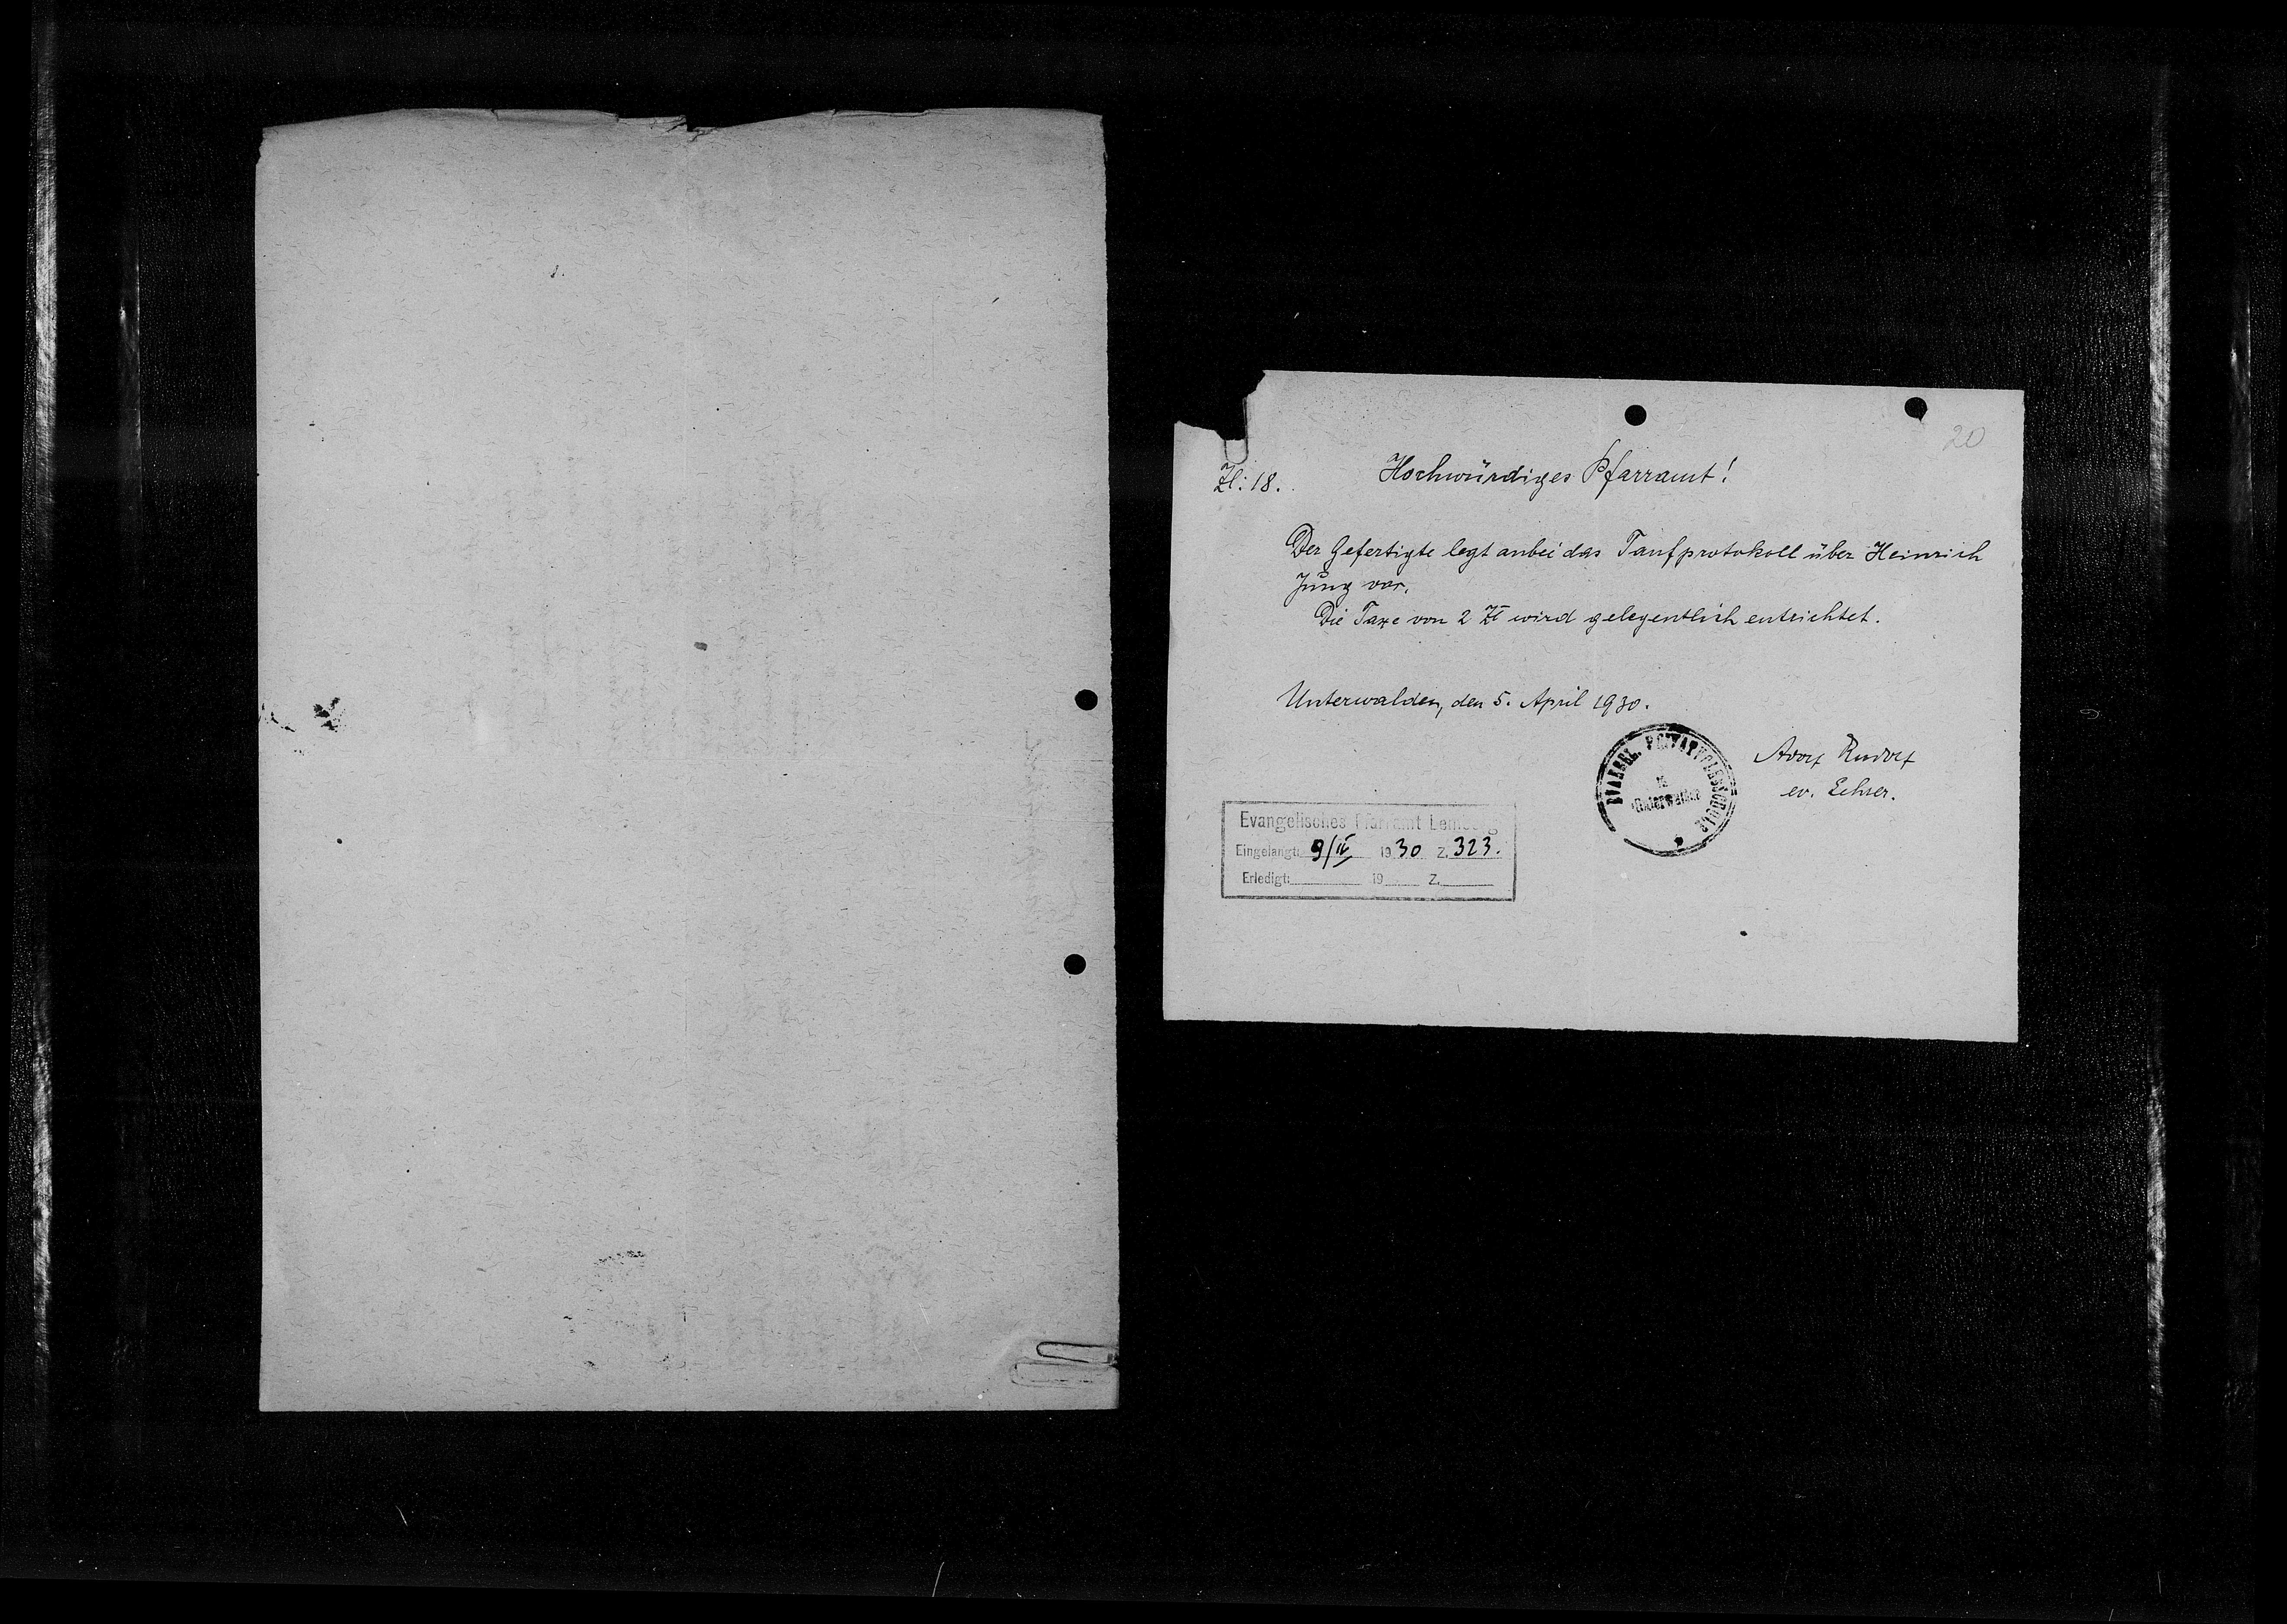 20
Zl: 18.
Hochwürdiges Pfarramt!
Der Gefertigte legt anbei das Taufprotokoll über Heinrich
Jung vor.
Die Taxe von 2 Zł wird gelegentlich entrichtet.
Unterwalden, den 5. April 1930.
EVANGEL. PRIVATVOLKSSCHULE
in
Unterwalden
Adolf Rudolf
ev. Lehrer.
Evangelisches Pfarramt Lemberg
Eingelangt: 9/IV 1930 Z. 323.
Erledigt: 19 Z.